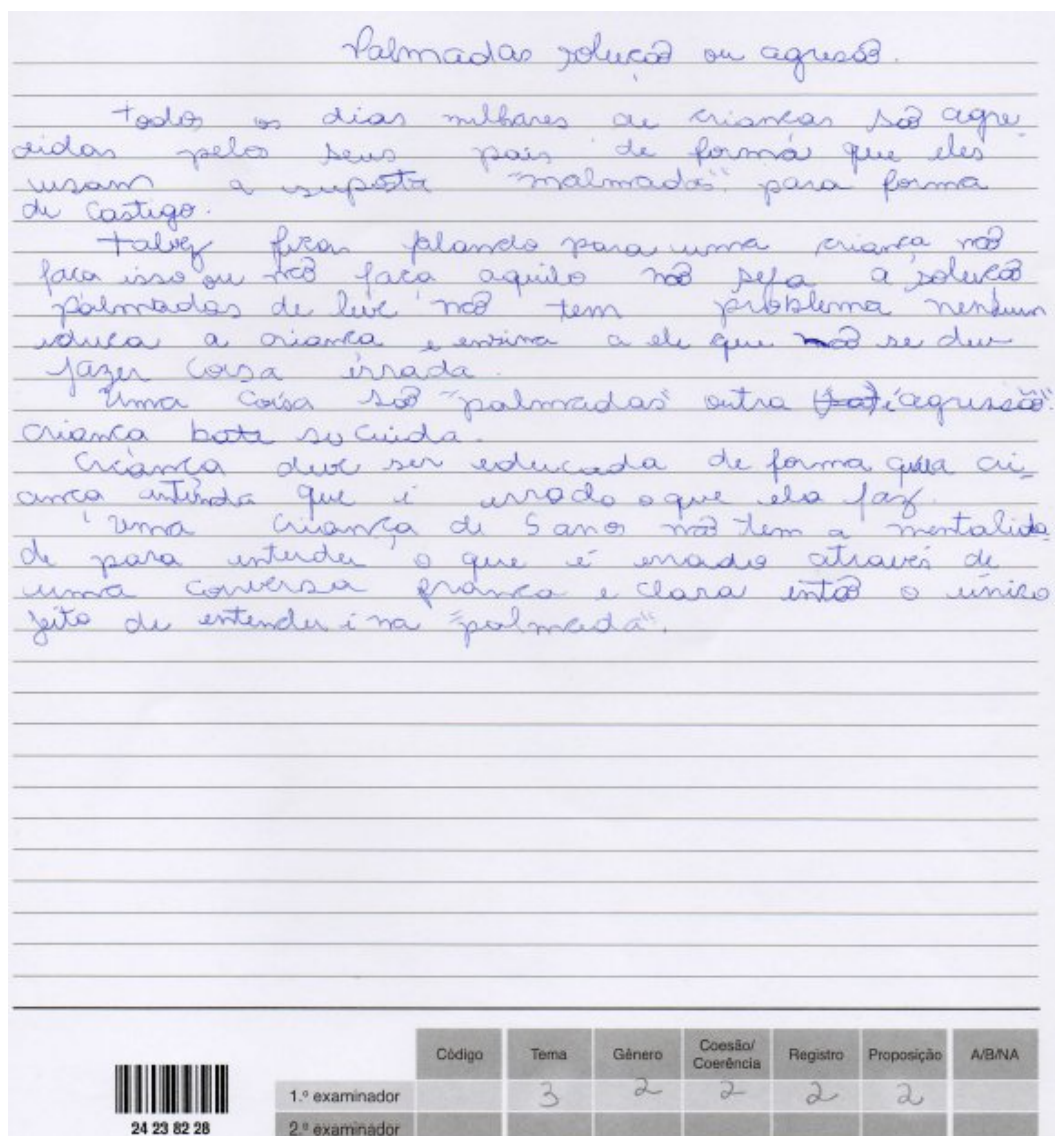 Palmadas solução ou agresão.
Todos os dias milhares de crianças são agre
didas pelos seus pais de forma que eles
usam a suposta "malmadas" para forma
de castigo.
Talvez ficar falando para uma criança não
faça isso ou não faça aquilo não seja a solução
palmadas de leve não tem problema nenhum
educa a criança e ensina a ele que não se deve
fazer coisa errada.
Uma coisa são "palmadas" outra é agressão".
criança
Criança deve ser educada de forma que a cri-
ança entenda que é errado o que ela faz.
Uma criança de 5 anos não tem a mentalida
de para entender o que é errado através de
uma conversa franca e clara então o único
jeito de entender é na "palmada".
Código Tema Gênero Coesão/ Coerência Registro Proposição A/B/NA
1.º examinador 3 2 2 2 2
24 23 82 28 2.º examinador